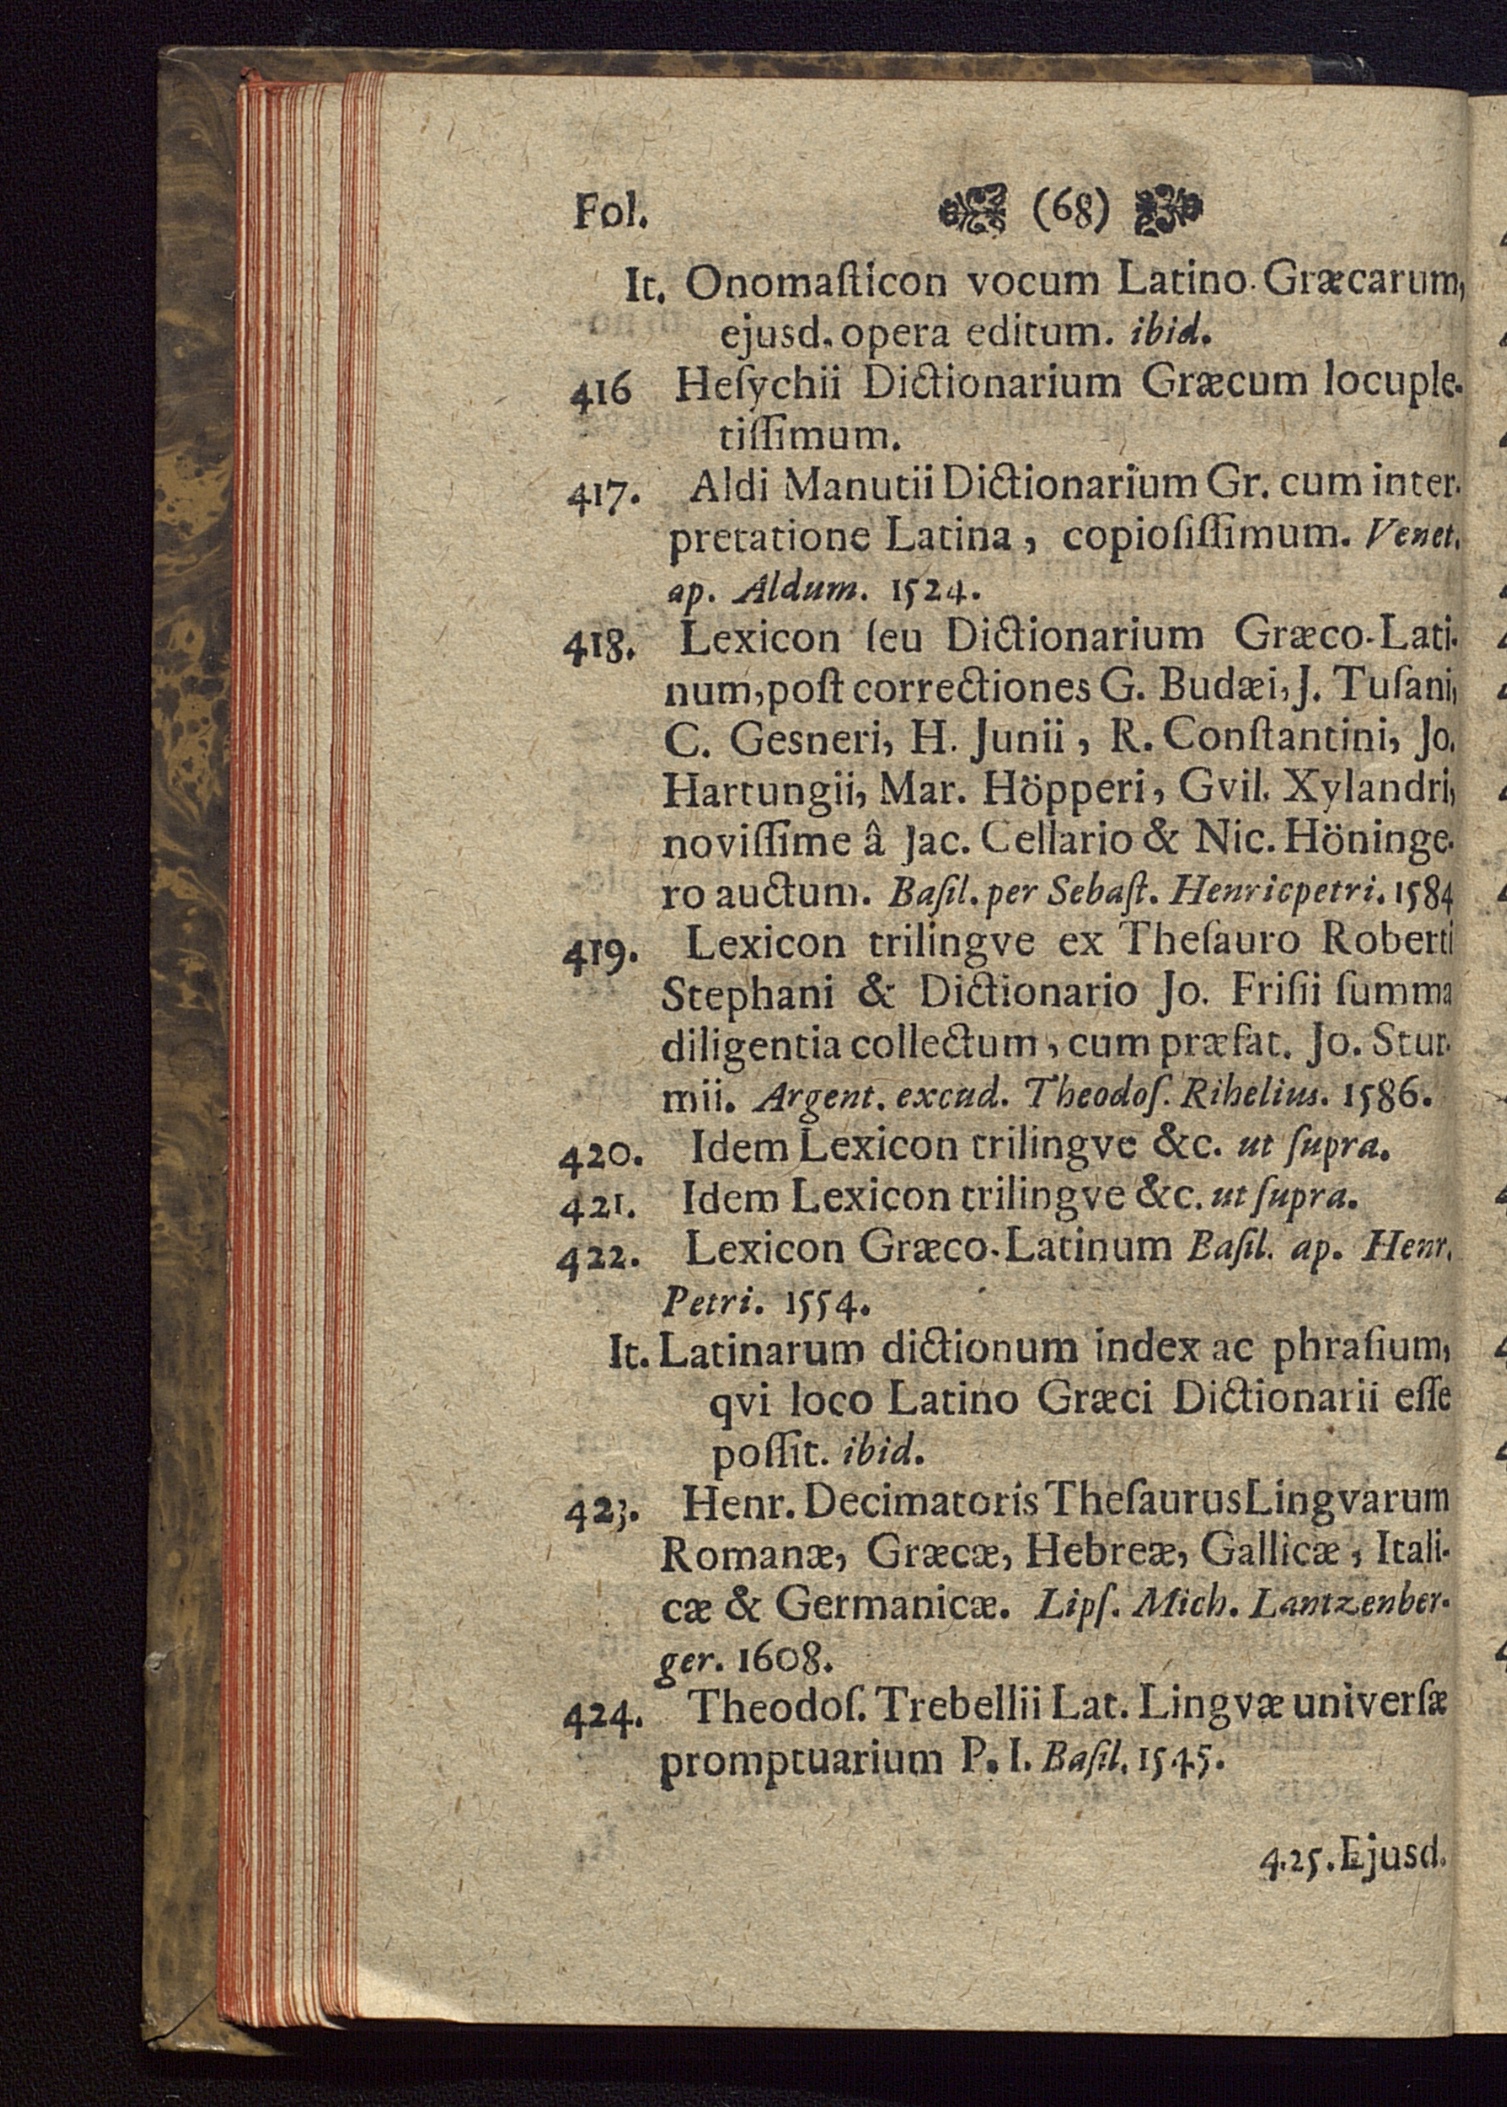 Fol. (68)
It. Onomaſticon vocum Latino-Græcarum,
ejusd. opera editum. ibid.
416 Heſychii Dictionarium Græcum locuple-
tiſſimum.
417. Aldi Manutii Dictionarium Gr. cum inter-
pretatione Latina, copioſiſſimum. Venet.
ap. Aldum. 1524.
418. Lexicon ſeu Dictionarium Græco-Lati-
num, poſt correctiones G. Budæi, J. Tuſani,
C. Gesneri, H. Junii, R. Conſtantini, Jo.
Hartungii, Mar. Höpperi, Gvil. Xylandri,
noviſſime â Jac. Cellario & Nic. Höninge-
ro auctum. Baſil. per Sebaſt. Henricpetri. 1584
419. Lexicon trilingve ex Theſauro Roberti
Stephani & Dictionario Jo. Friſii ſumma
diligentia collectum, cum præfat. Jo. Stur-
mii. Argent. excud. Theodoſ. Rihelius. 1586.
420. Idem Lexicon trilingve &c. ut ſupra.
421. Idem Lexicon trilingve &c. ut ſupra.
422. Lexicon Græco-Latinum Baſil. ap. Henr.
Petri. 1554.
It. Latinarum dictionum index ac phraſium,
qvi loco Latino Græci Dictionarii eſſe
poſſit. ibid.
423. Henr. Decimatoris Theſaurus Lingvarum
Romanæ, Græcæ, Hebreæ, Gallicæ, Itali-
cæ & Germanicæ. Lipſ. Mich. Lantzenber-
ger. 1608.
424. Theodoſ. Trebellii Lat. Lingvæ univerſæ
promptuarium P. I. Baſil. 1545.
425. Ejusd.